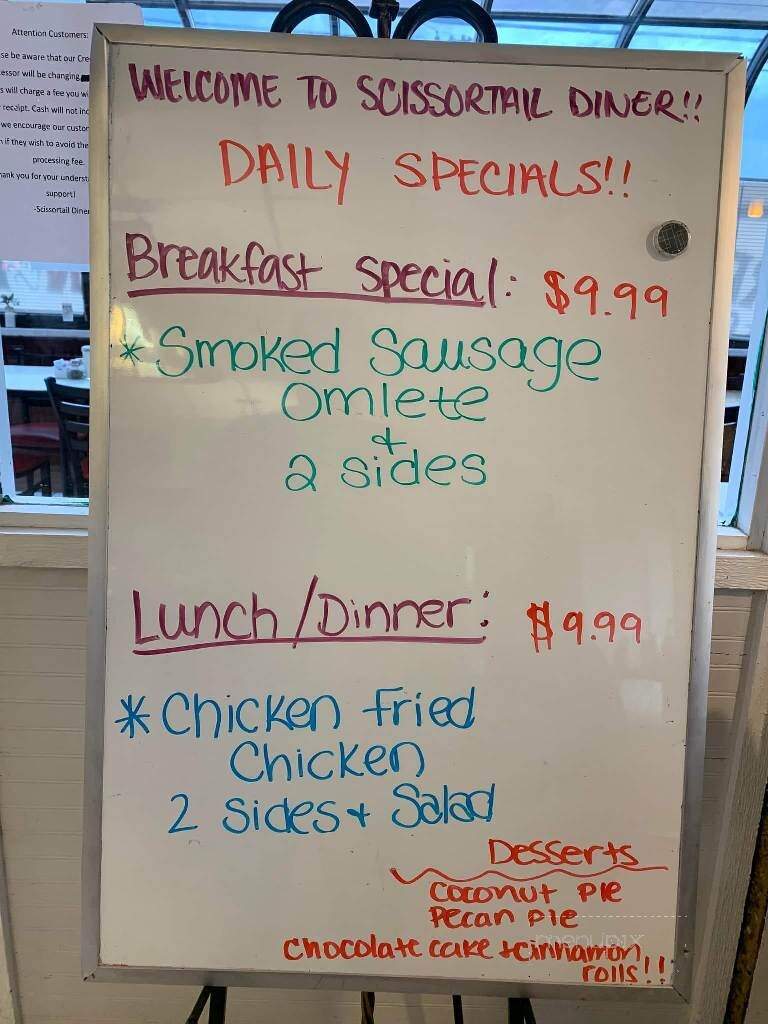 Attention Customers:
se be aware that our Cre
essor will be changing
s will charge a fee you wi
receipt. Cash will not inc
we encourage our custor
if they wish to avoid the
processing fee.
ank you for your underst
support!
-Scissortail Diner
WELCOME TO SCISSORTAIL DINER!!
DAILY SPECIALS!!
Breakfast special: $9.99
* Smoked Sausage
Omlete
+
2 sides
Lunch/Dinner: $9.99
* Chicken fried
Chicken
2 sides + Salad
Desserts
coconut pie
Pecan pie
chocolate cake + cinnamon
rolls!!
menupix